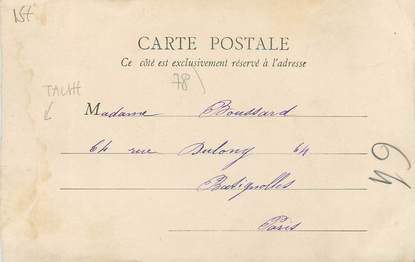 1St
CARTE POSTALE
Ce côté est exclusivement réservé à l'adresse
78)
TACHH
Madame Boussard
64 rue Dulong 64
Batignolles
Paris
64